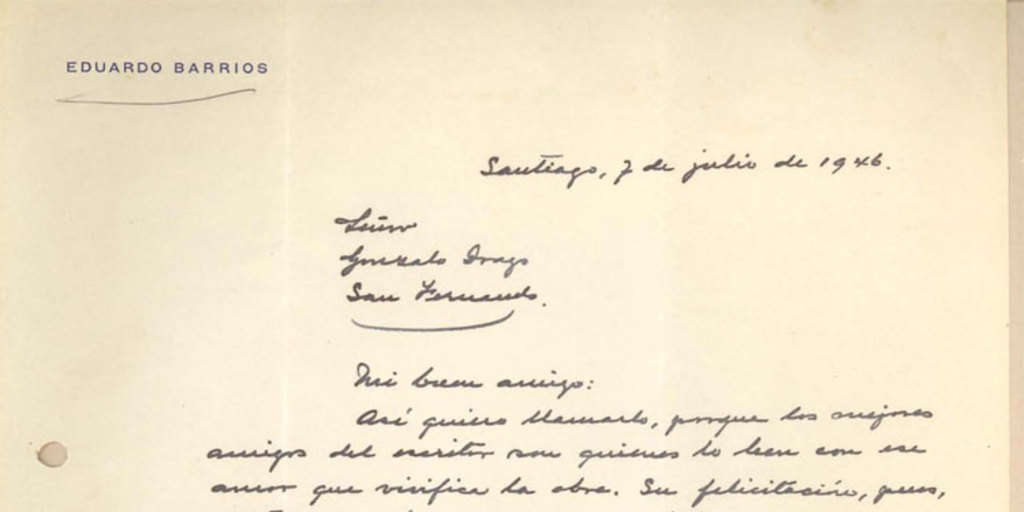 EDUARDO BARRIOS
Santiago, 7 de julio de 1946.
Señor
Gonzalo Drago
San Fernando.
Mi buen amigo:
Así quiero llamarlo, porque los mejores
amigos del escritor son quienes lo leen con ese
amor que vivifica la obra. Su felicitación, pues,